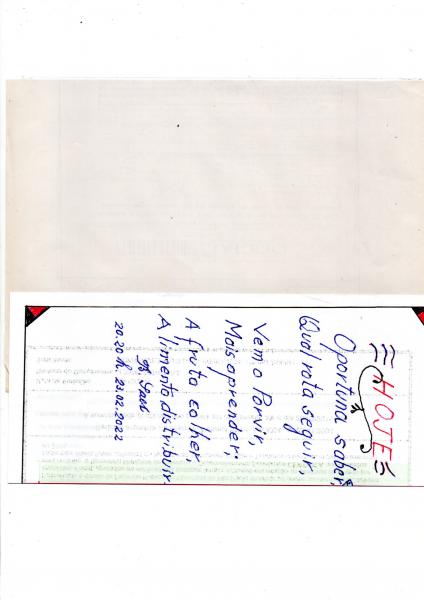 HOJE
Oportuna saber,
Qual rota seguir,
Vem o Porvir,
Mais aprender;
A fruta colher,
Alimento distribuir.
20.20h. 23.02.2022